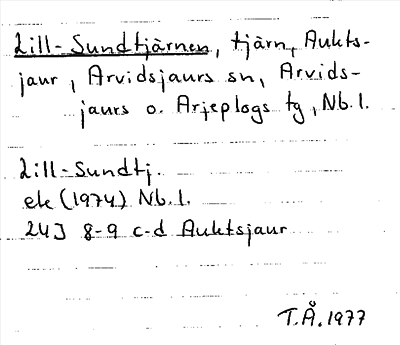 Lill-Sundtjärnen, tjärn, Aukts-
jaur, Arvidsjaurs sn, Arvids-
jaurs o. Arjeplogs tg, Nb.l.
Lill-Sundtj.
ek (1974) Nb.l.
24J 8-9 c-d Auktsjaur
T.Å.1977